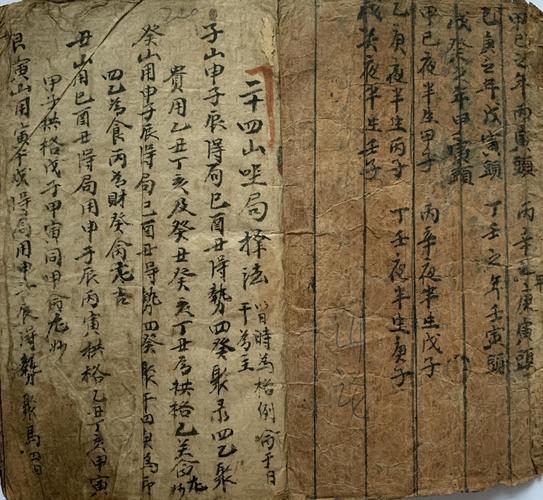 甲己之年丙寅頭 丙辛之年庚寅頭
乙庚之年戊寅頭 丁壬之年壬寅頭
戊癸之年甲寅頭
甲己夜半生甲子 丙辛夜半生戊子
乙庚夜半生丙子 丁壬夜半生庚子
戊癸夜半生壬子
二十四山坐局擇法
子山申子辰得局巳酉丑得勢四癸聚彔四乙聚
貴用乙丑丁亥及癸丑癸亥丁丑為拱格乙
癸山用申子辰得局巳酉丑得勢四癸聚干四
四乙為食丙為財癸禽尤吉
丑山用巳酉丑得局用申子辰丙寅拱格乙丑丁亥甲寅
甲子拱格戊子甲寅同甲
艮寅山用寅午戌得局用申子辰得勢聚